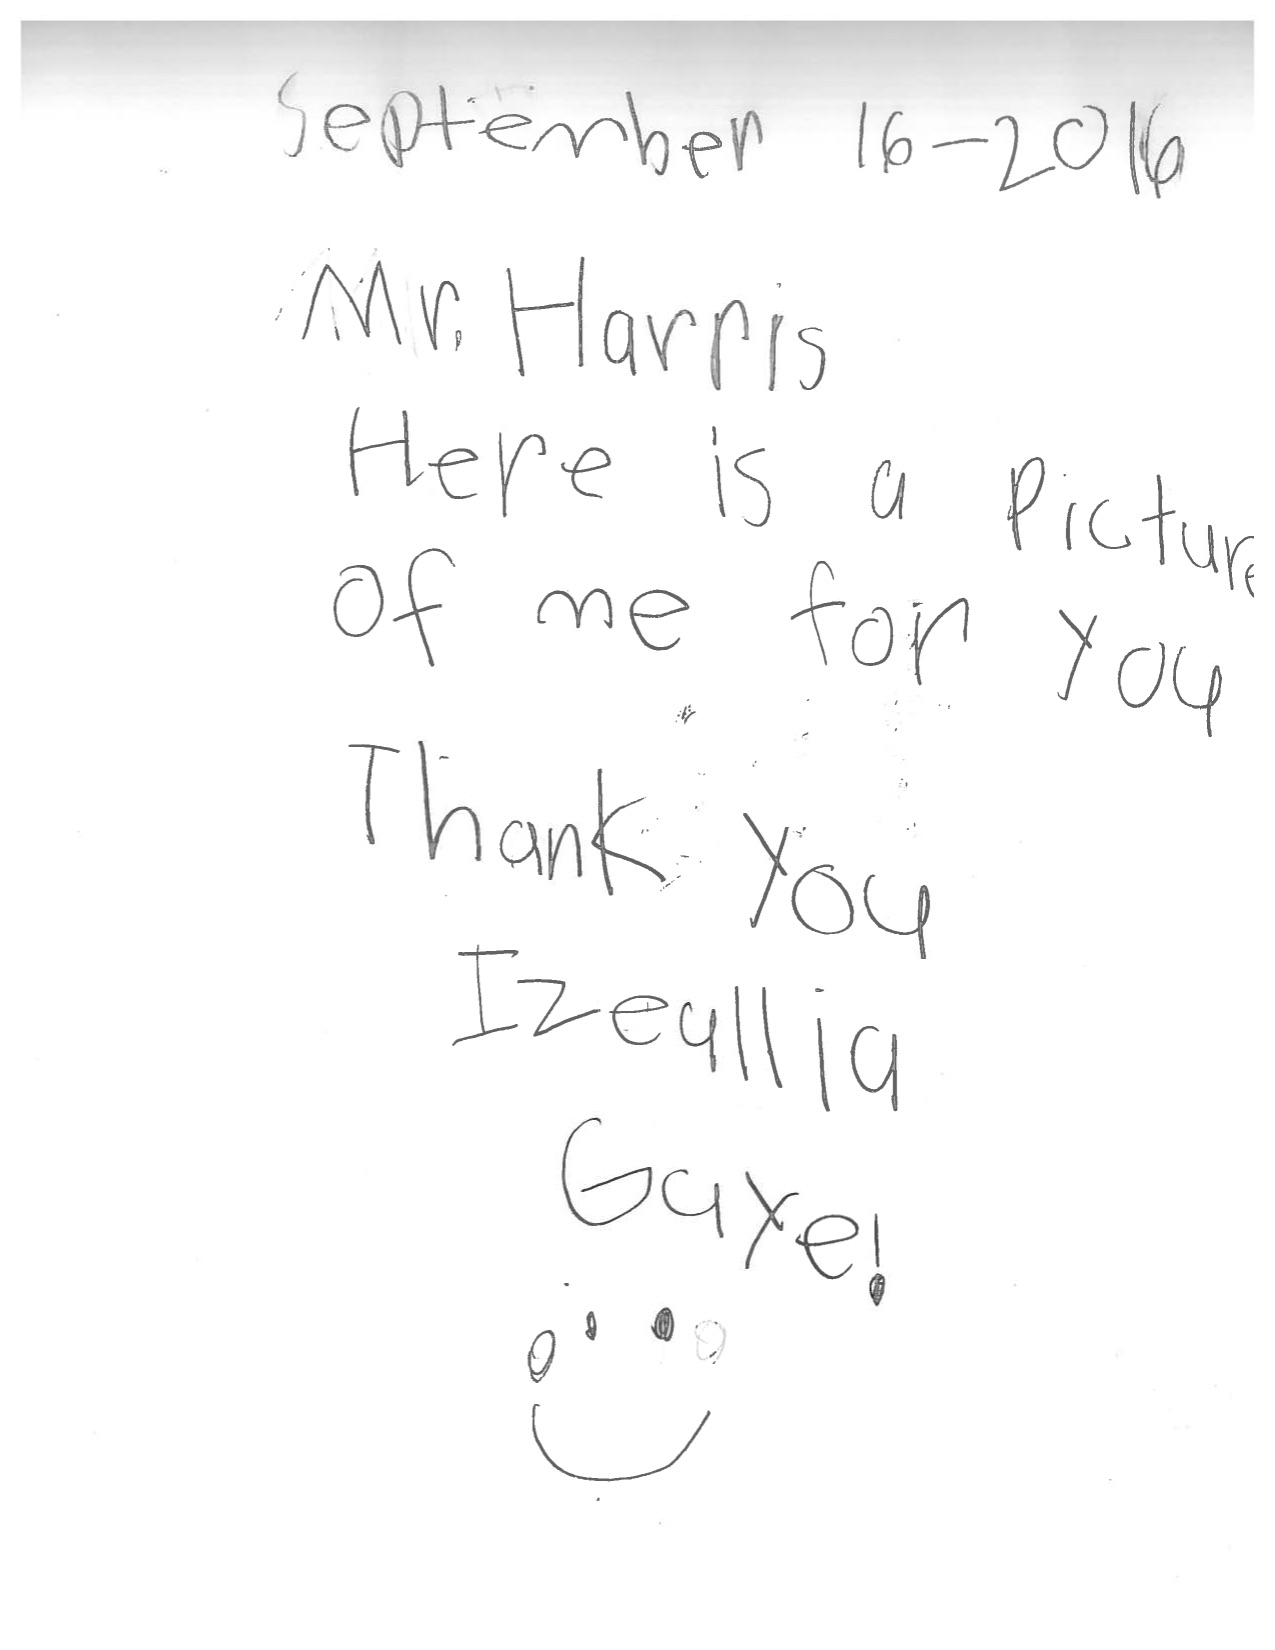 September 16-2016
Mr. Harris
Here is a Picture
of me for you
Thank you
Izeallia
Gaxe!